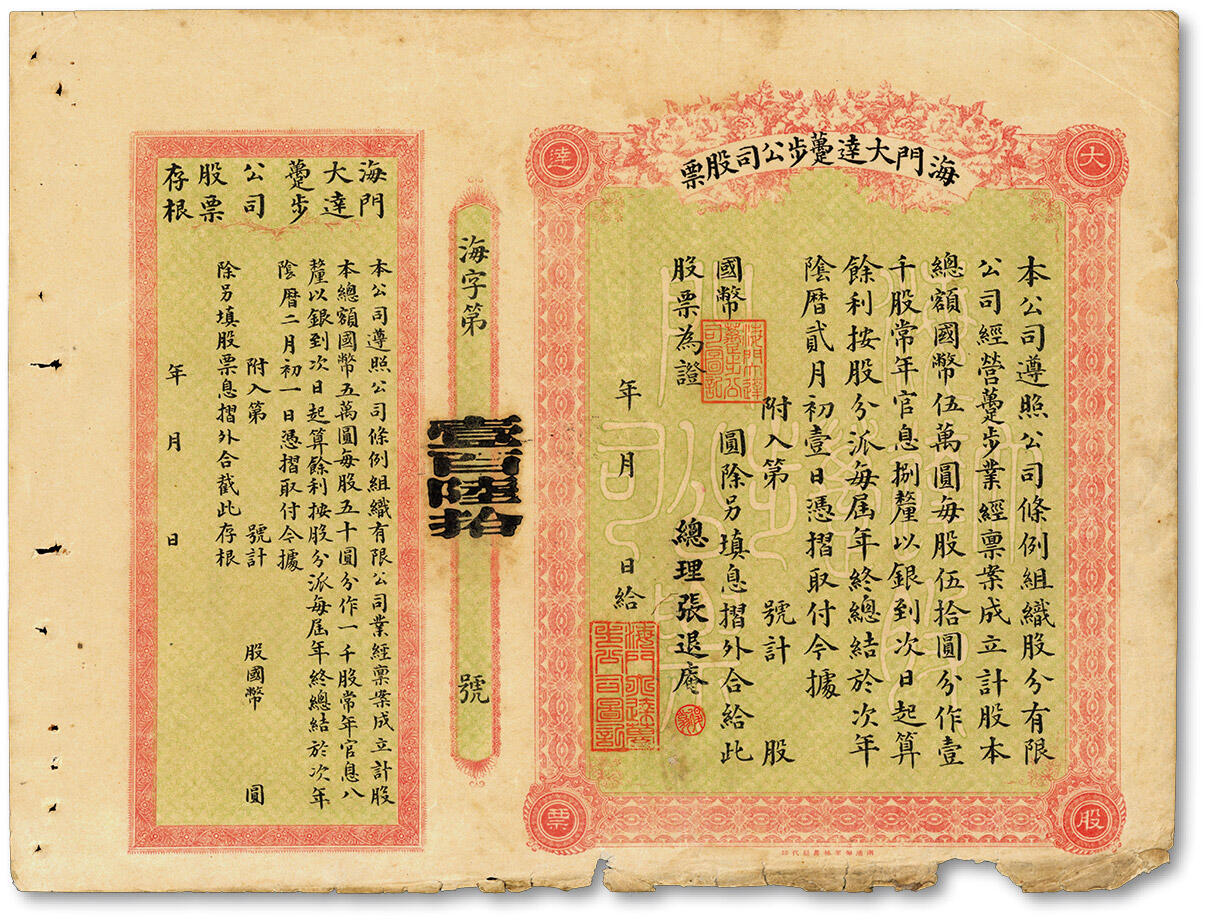 海門大達躉步公司股票
大
達
股
票
本公司遵照公司條例組織股分有限
公司經營躉步業經稟案成立計股本
總額國幣伍萬圓每股伍拾圓分作壹
千股常年官息捌釐以銀到次日起算
餘利按股分派每屆年終總結於次年
陰曆貳月初壹日憑摺取付今據
附入第 號計 股
國幣 圓除另填息摺外合給此
股票為證
總理張退庵
年 月 日給
海門大達躉步公司圖記
海字第 壹百陸拾 號
海門
大達
躉步
公司
股票
存根
本公司遵照公司條例組織有限公司業經稟案成立計股
本總額國幣五萬圓每股五十圓分作一千股常年官息八
釐以銀到次日起算餘利按股分派每屆年終總結於次年
陰曆二月初一日憑摺取付今據
附入第 號計 股國幣 圓
除另填股票息摺外合截此存根
年 月 日